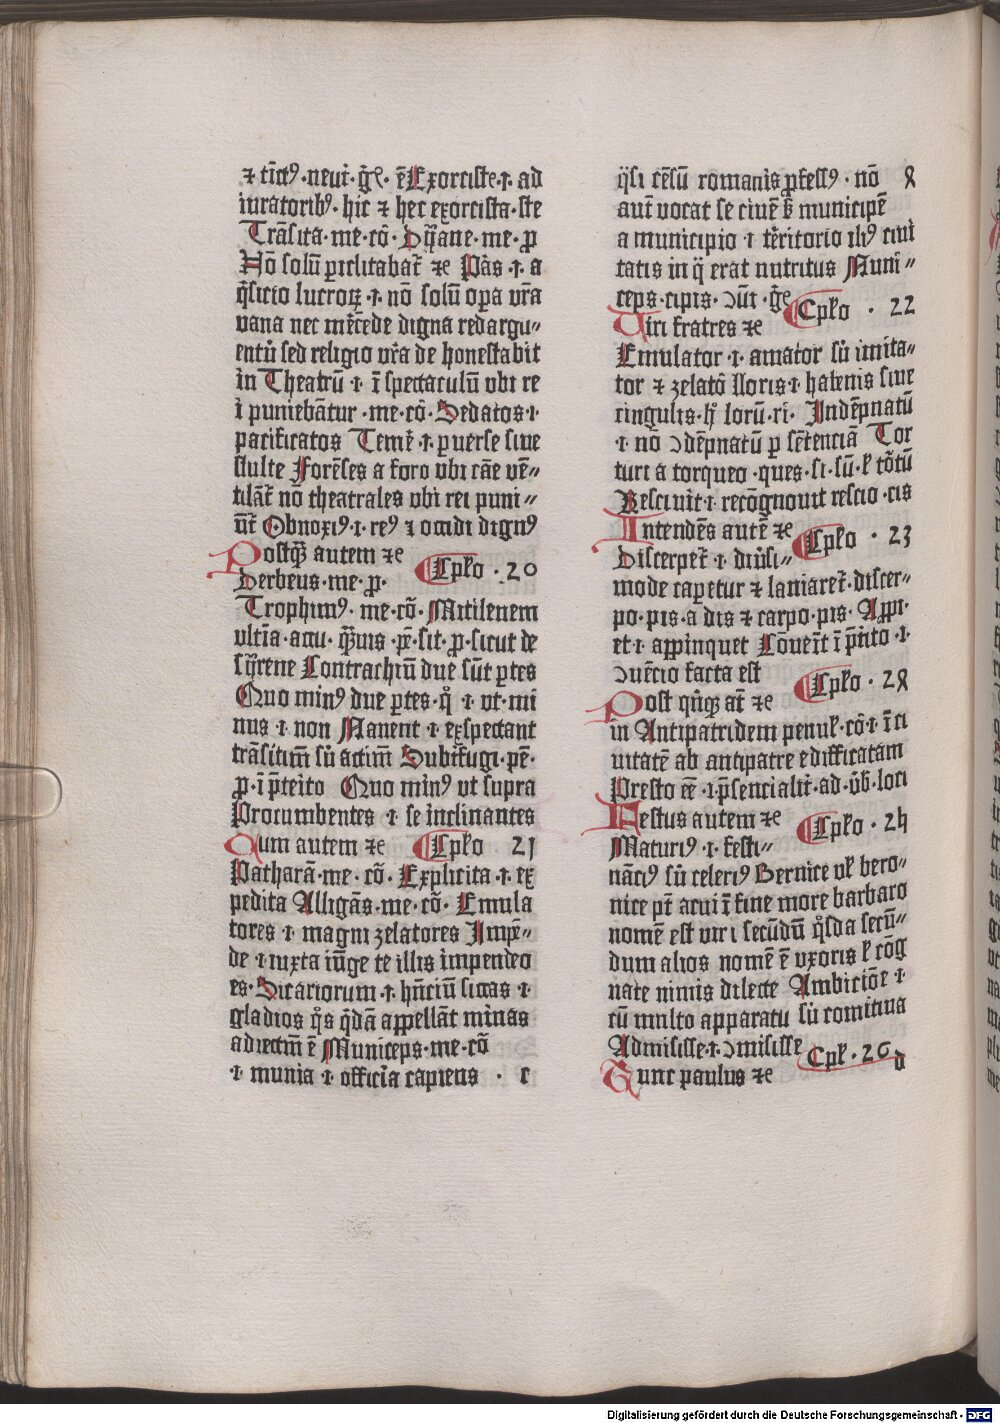 ⁊ tīctꝰ·neut̉·gͥs. ē Exorciste·ı·ad
iuratoribꝰ·hic ⁊ hec exorcista·ste
Trāsita·me·cō· Dyane·me·p̱
Nō solū periclitabat̄ ⁊c Pās·ı·a
q̄sicio lucroꝝ·ı·nō solū oꝑa vr̄a
vana nec mercede digna redargu⸗
entur̄ sed religio vr̄a de honestabit̄
in Theatrū·ı·ī spectaculū vbi re
i puniebātur·me·cō· Sedatos·ı·
pacificatos Temē·ı·ꝑuerse siue
stulte Forēses a foro vbi cāe vē⸗
tilāt̄ nō theatrales vbi rei puni⸗
ūt̄ Obnoxiꝰ·ı·reꝰ ⁊ occidi dignꝰ
Postꝙ̄ autem ⁊c
Cplo·20
Derbeus·me·ꝓ·
Trophimꝰ·me·cō· Mitilenem
vltīa·acu· quis·p̄·sit·ꝓ·sicut de
syrene Contrachiū due sūt ꝑtes
Quo minꝰ due ꝑtes·qͥ·ı·vt·mi
nus·ı·non Manent·ı·exspectant
trāsitum sū actim̄ Subt̄fugi·pe·
ꝓ·ī p̄teito Quo minꝰ vt supra
Procumbentes·ı·se inclinantes
Cum autem ⁊c Cplo 21
Patharā·me·cō· Explicita·ı·ex
pedita Alligās·me·cō· Emula
tores·ı·magni zelatores Impē⸗
de·ı·iuxta iūge te illis impendeo
es· Sicariorum·ı·hn̄ciū siccas·ı·
gladios qͥs qͥdā appellāt minas
adiectm̄ ē Municeps·me·cō
·ı·munia·ı·officia capiens · c
qͥsi cēsū romanis ꝓfessꝰ·nō 8
aut̄ vocat se ciuē s̄ municipē
a municipio·ı·territorio illiꝰ ciui
tatis in q̄ erat nutritus Muni⸗
ceps·cipis·ↄūi·gͥs Cplo·22
Uiri fratres ⁊c
Emulator·ı·amator sū imita⸗
tor ⁊ zelatō lloris·ı·habenis siue
cingulis·h̄ lorū·ri· Indēpnatū
·ı·nō ↄdēpnatū ꝑ sētenciā Tor
turi a torqueo·ques·si·sū·l tōtū
Resciuit·ı·recōgnouit rescio·cis
Intendēs autē ⁊c Cplo·23
Discerpet̄·ı·diūsi⸗
mode carpetur ⁊ laniaret̄·discer⸗
po·pis·a dis ⁊ carpo·pis· Appi·
et·ı·appinquet Cōueīt̄ ī p̄tito·ı·
ↄuēcio facta est
Post qn̄qꝫ at̄ ⁊c Cplo·24
in Antipatridem penul·cō·ı·ī ci
uitatē ab antipatre edifficatam
Presto eē·ı·p̄sencialit̄·ad·v̄b·loci
Festus autem ⁊c Cplo·25
Maturiꝰ·ı·festi⸗
nāciꝰ sū celeriꝰ Bernice vl bero⸗
nice pt̄ acui ī fine more barbaro
nomē est viri secūdū qͥsda secū⸗
dum alios nomē ē vxoris l cōg
nate nimis dilecte Ambiciōe·ı·
cū multo apparatu sū comitiua
Admisisse·ı·ↄmisisse Cpl·26 d
Tunc paulus ⁊c
Digitalisierung gefördert durch die Deutsche Forschungsgemeinschaft - DFG